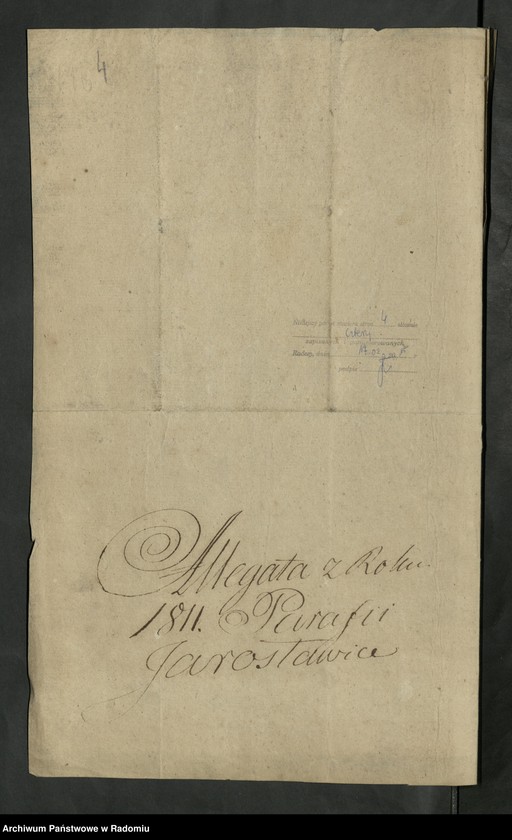 4
4
Radom, dnia
podpis
Allegata z Roku.
1811. Parafii
Jarosławice
Archiwum Państwowe w Radomiu